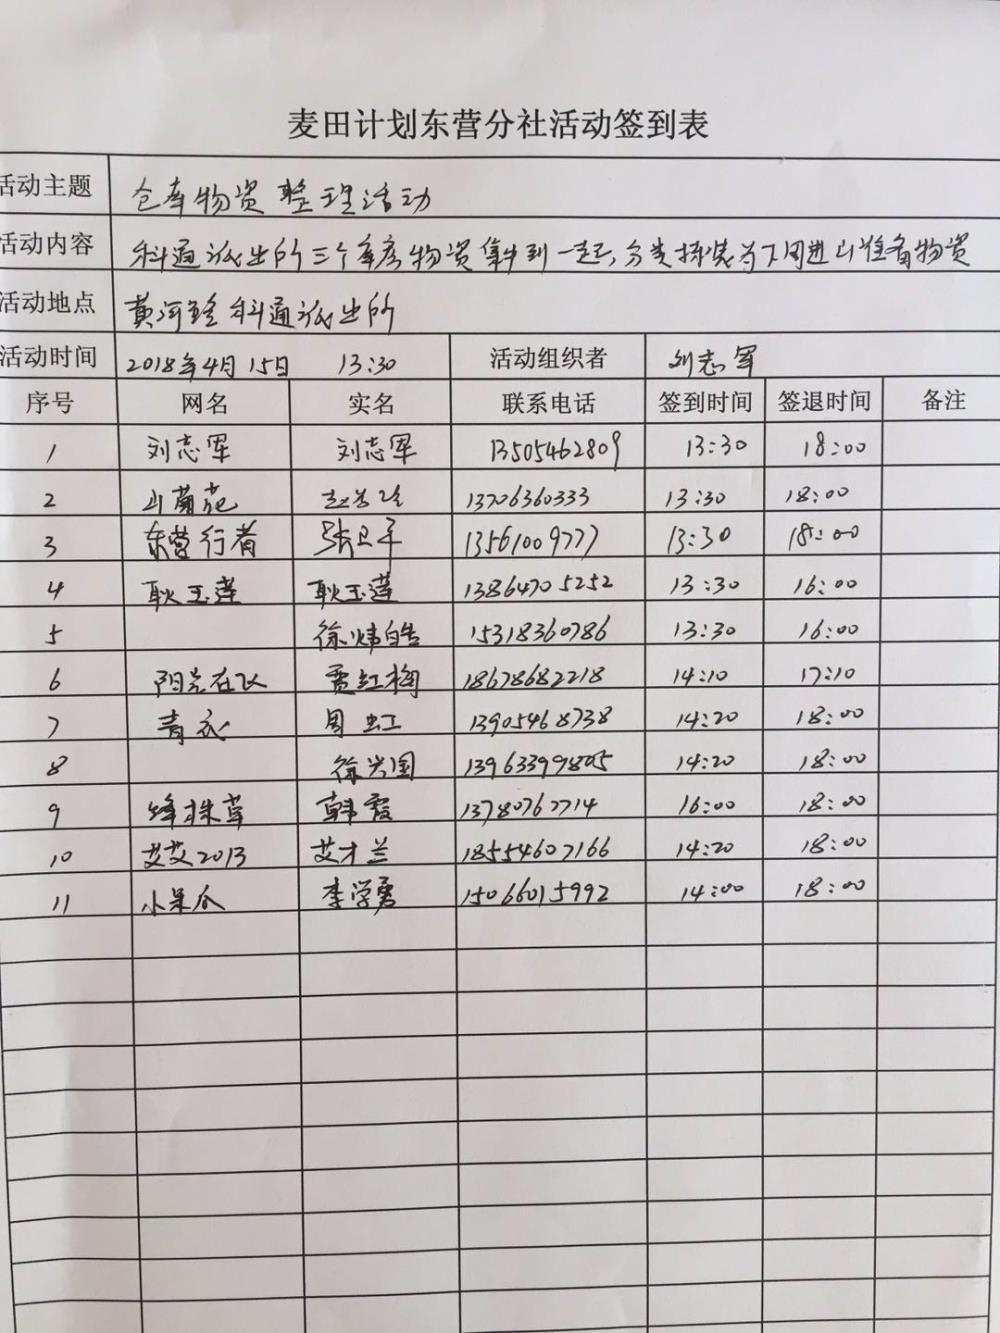 麦田计划东营分社活动签到表
活动主题 仓库物资整理活动
活动内容 科通派出所三个库房物资集中到一起,分类拆装为下周进山准备物资
活动地点 黄河路科通派出所
活动时间 2018年4月15日 13:30 活动组织者 刘志军
序号 网名 实名 联系电话 签到时间 签退时间 备注
1 刘志军 刘志军 13505462809 13:30 18:00
2 山菊花 13706360333 13:30 18:00
3 东营行者 张卫平 13561009777 13:30 18:00
4 耿玉莲 耿玉莲 13864705252 13:30 16:00
5 徐炜皓 15318360786 13:30 16:00
6 阳光在心 贾红梅 18678682218 14:10 17:10
7 青衣 周虹 13905468738 14:20 18:00
8 徐兴国 13963399805 14:20 18:00
9 绛株草 韩霞 13780762714 16:00 18:00
10 艾艾2013 艾才兰 18554607166 14:20 18:00
11 小呆瓜 李学勇 15066015992 14:00 18:00